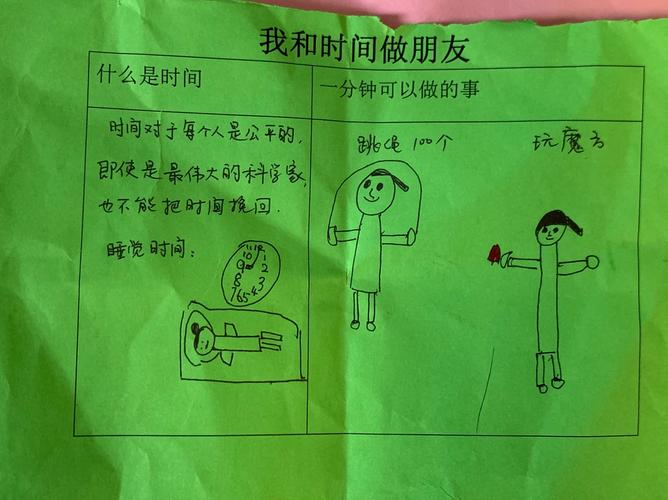 我和时间做朋友
什么是时间
一分钟可以做的事
时间对于每个人是公平的,
即使是最伟大的科学家,
也不能把时间挽回.
睡觉时间:
11 12 1
10 2
9 3
8 4
7 6 5
跳绳 100个
玩魔方